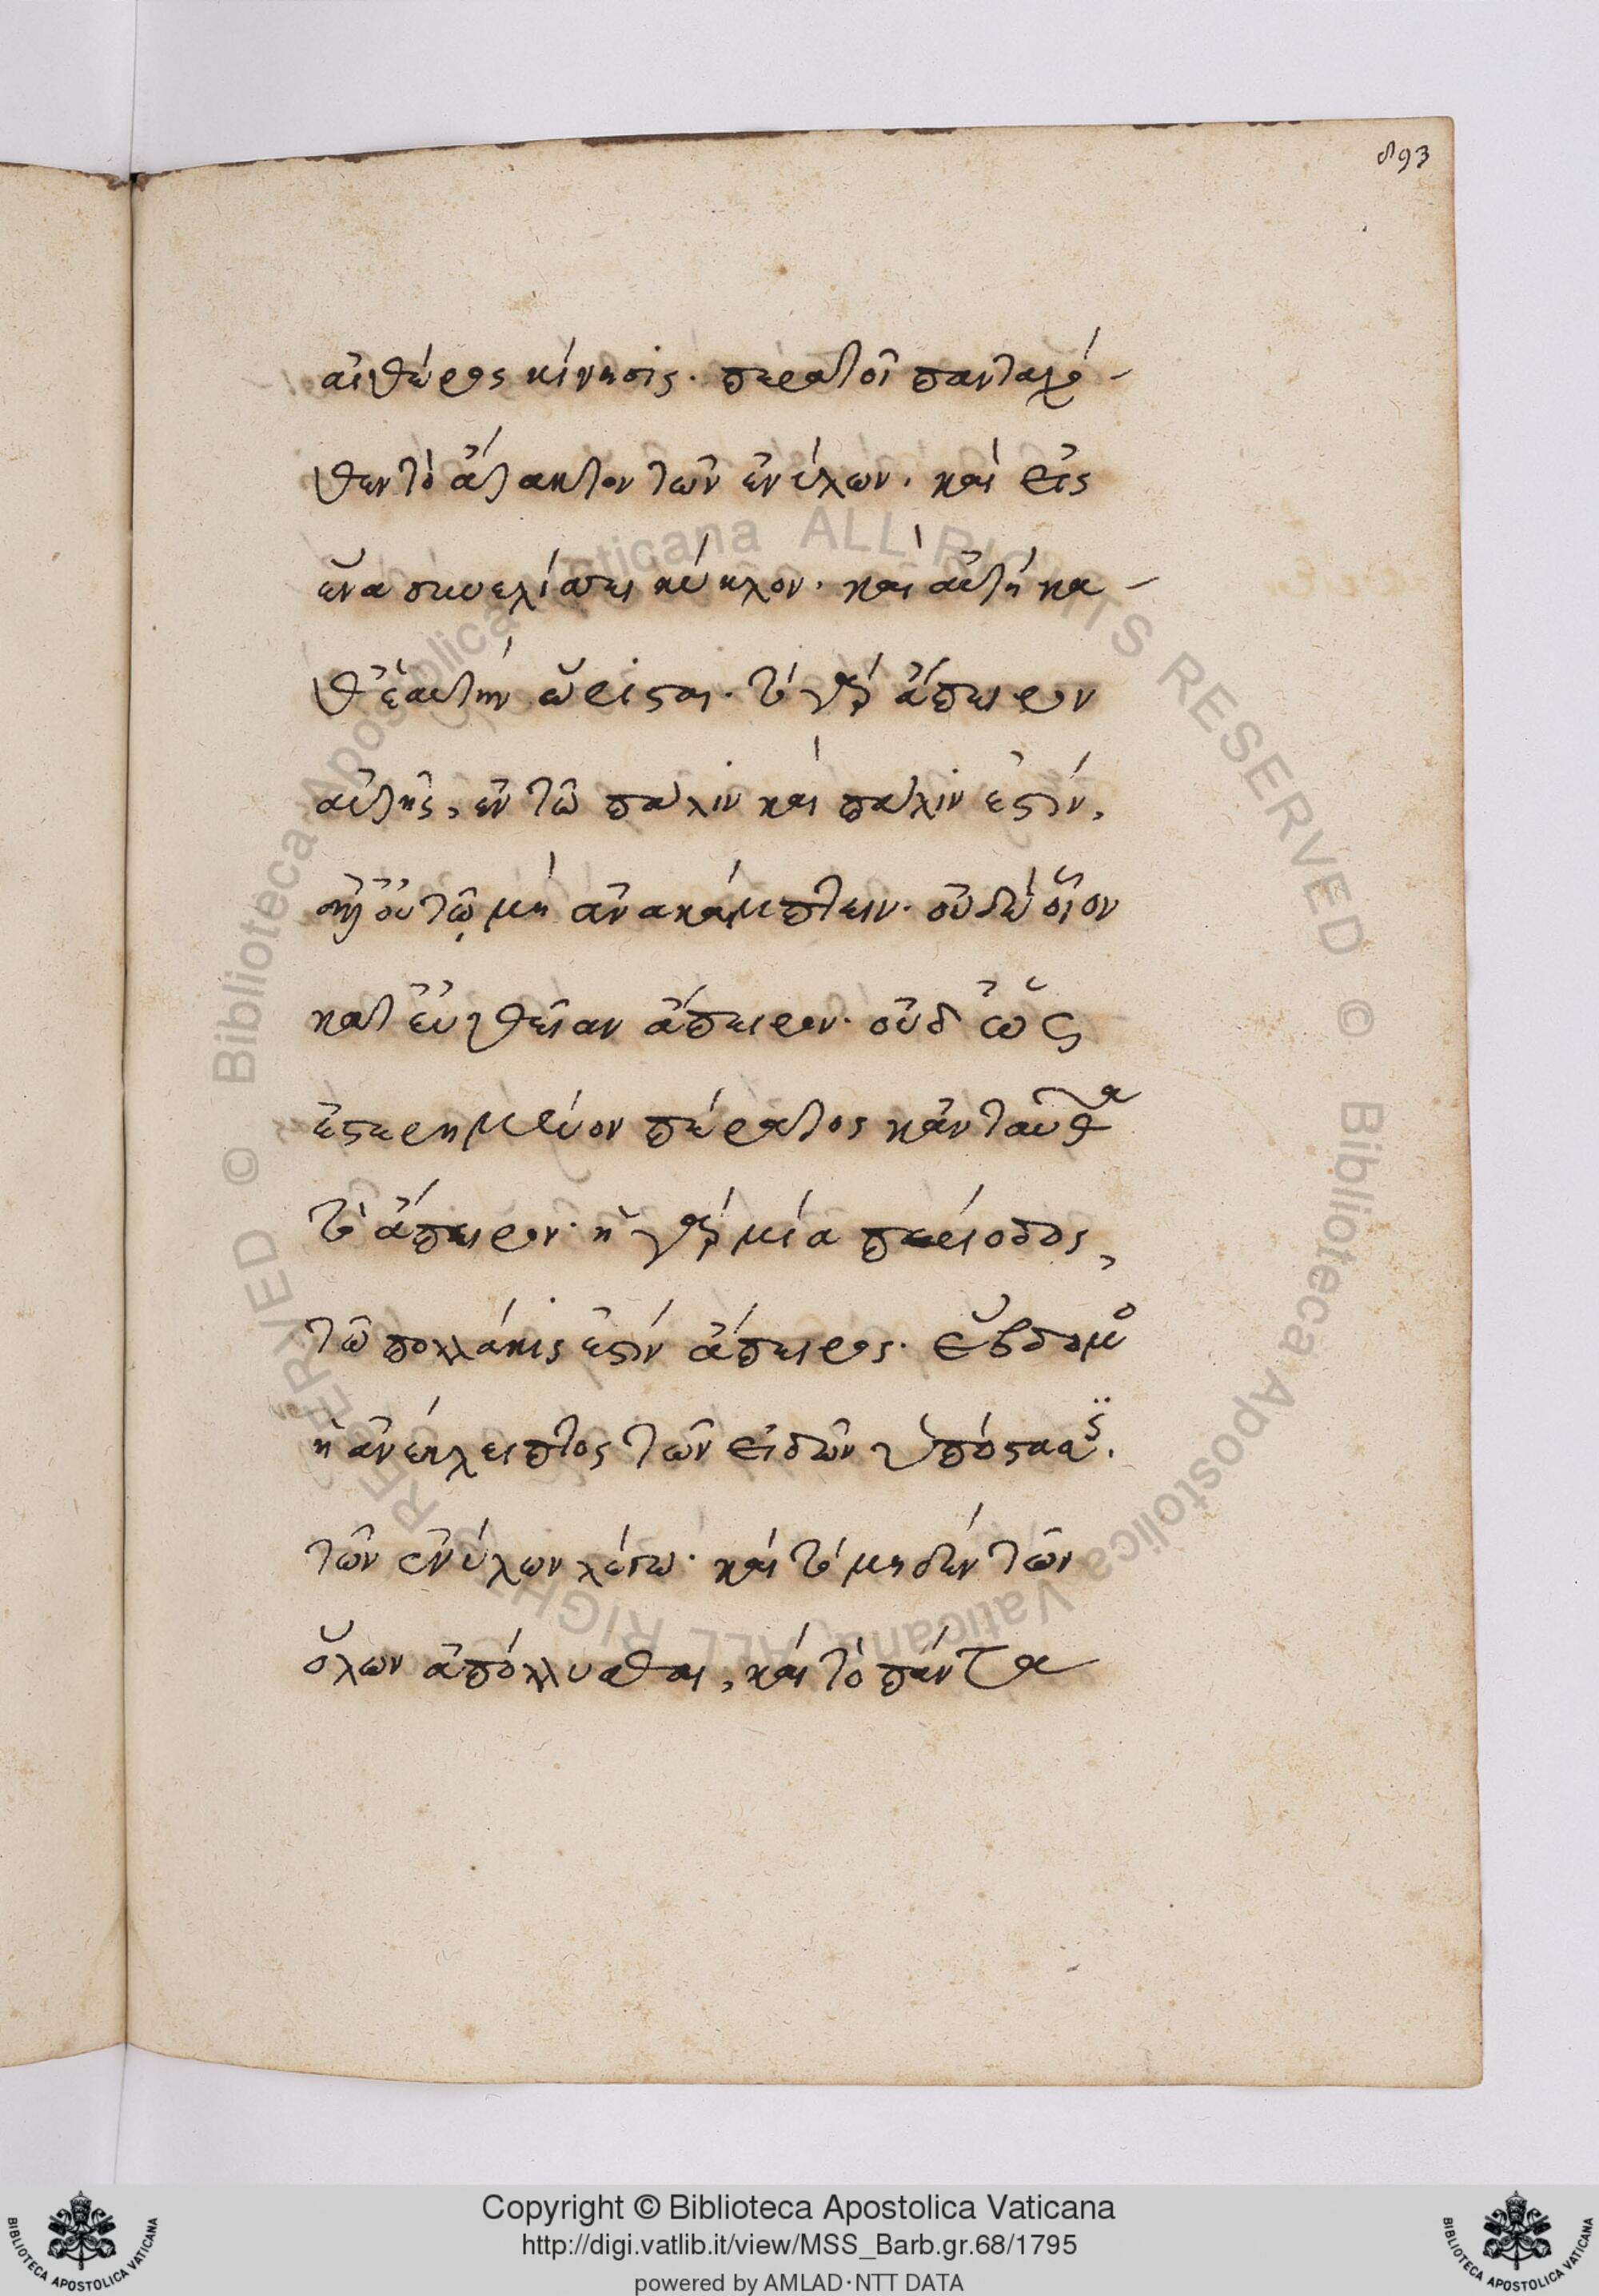 893
αἰθέρος κίνησις· περατοῖ πανταχό-
θεν τὸ ἄτακτον τῶν ἐνύλων· καὶ εἰς
ἕνα συνελίσσει κύκλον· καὶ αὐτὴ κα-
θ' ἑαυτὴν ὥρισται· τὸ γὰρ ἄπειρον
αὐτῆς, ἐν τῷ πάλιν καὶ πάλιν ἐστίν,
καὶ οὐ τῷ μὴ ἀνακάμπτειν· οὐδὲ οἷον
κατ' εὐθεῖαν ἄπειρον· οὐδ' ὡς
ἐστερημένον πέρατος κἀνταῦθα
τὸ ἄπειρον· ἡ γὰρ μία περίοδος,
τῷ πολλάκις ἐστὶν ἄπειρος. ἕβδομον
ἡ ἀνέκλειπτος τῶν εἰδῶν ὑπόστασις.
τῶν ἐνύλων λέγω· καὶ τὸ μηδὲν τῶν
ὅλων ἀπόλλυσθαι, καὶ τὸ πάντα
© Biblioteca Apostolica Vaticana ALL RIGHTS RESERVED © Biblioteca Apostolica Vaticana ALL RIGHTS RESERVED
Copyright © Biblioteca Apostolica Vaticana
http://digi.vatlib.it/view/MSS_Barb.gr.68/1795
powered by AMLAD·NTT DATA
BIBLIOTECA APOSTOLICA VATICANA
BIBLIOTECA APOSTOLICA VATICANA